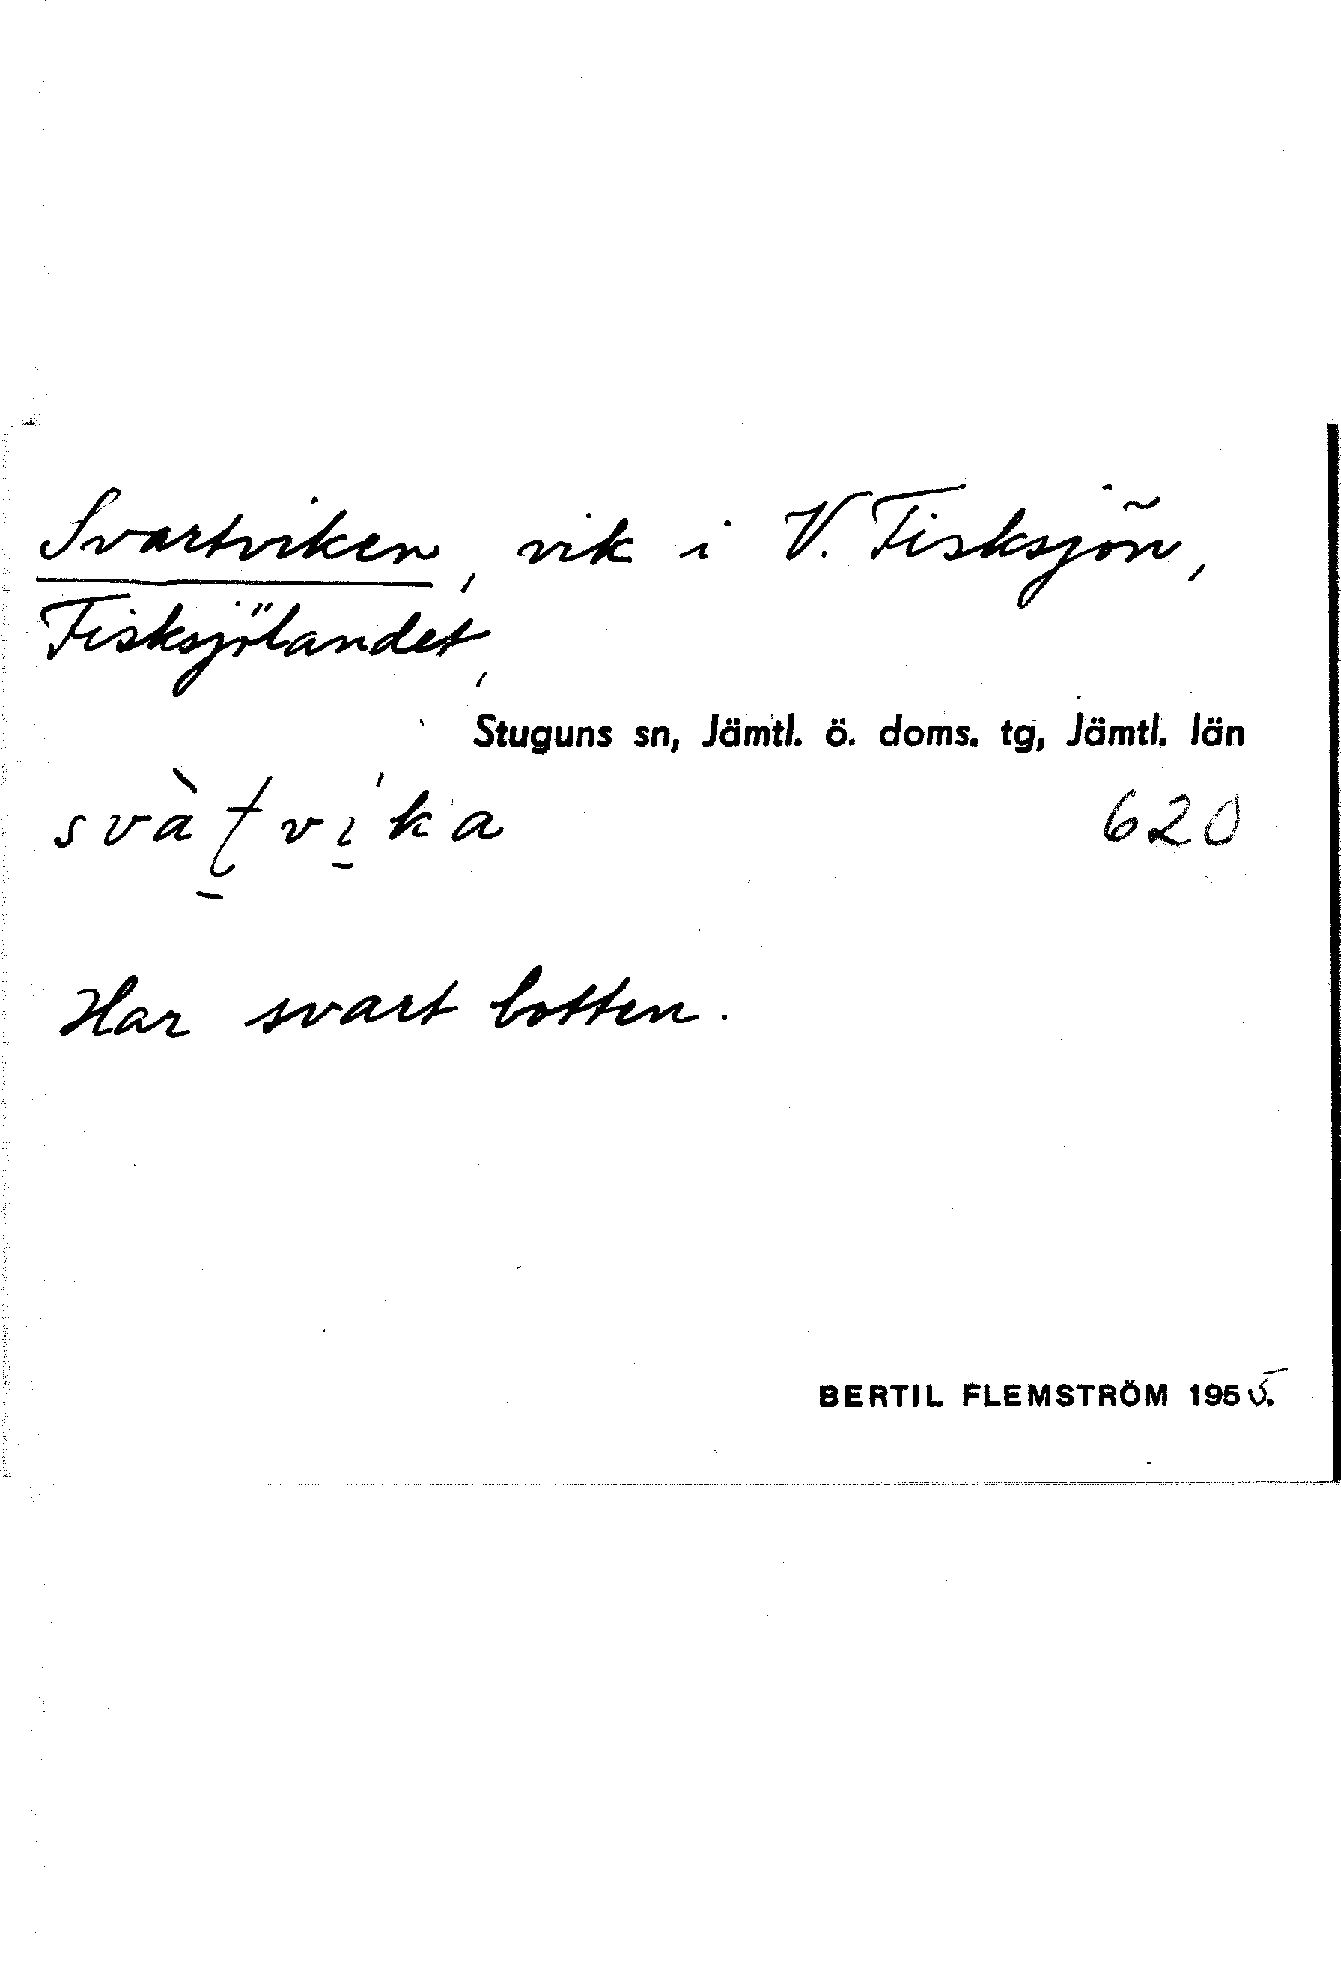 Svartviken, vik i V. Fisksjön,
Fisksjölandet,
Stuguns sn, Jämtl. ö. doms. tg, Jämtl. län
svàt̠vi̠ka 620
Har svart botten.
BERTIL FLEMSTRÖM 1955.